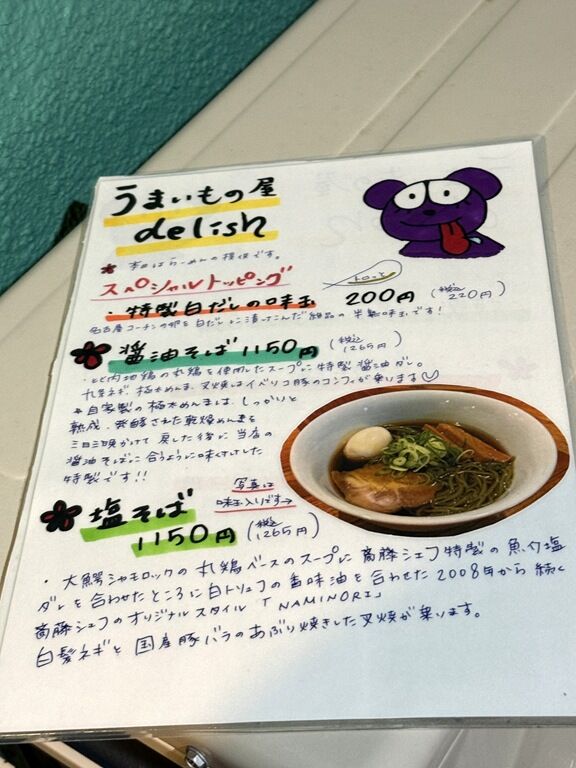 うまいもの屋
delish
本日はらーめんの提供です。
スペシャルトッピング
・特製白だしの味玉 200円 (税込220円)
トロッと
名古屋コーチンの卵を白だしに漬けこんだ絶品の半熟味玉です!
醤油そば 1150円 (税込1265円)
比内地鶏の丸鶏を使用したスープに特製醤油ダレ。
九条ネギ、極太めんま、叉焼はイベリコ豚のコンフィが乗ります♡
自家製の極太めんまは、しっかりと
熟成・発酵された乾燥めんまを
三日三晩かけて戻した後に当店の
醤油そばに合うように味つけした
特製です!!
写真は
味玉入りです→
塩そば
1150円 (税込1265円)
・大鰐シャモロックの丸鶏ベースのスープに斎藤シェフ特製の魚介塩
ダレを合わせたところに白トリュフの香味油を合わせた2008年から続く
斎藤シェフのオリジナルスタイル「NAMINORI」
白髪ネギと国産豚バラのあぶり焼きした叉焼が乗ります。